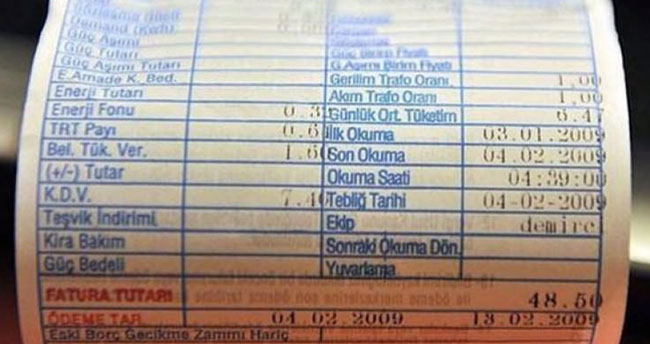 Güç Aşımı
Güç Tutarı Güç Birim Fiyatı
Güç Aşımı Tutarı G.Aşımı Birim Fiyatı
E.Amade K. Bed. Gerilim Trafo Oranı 1,00
Enerji Tutarı Akım Trafo Oranı 1,00
Enerji Fonu 0.3 Günlük Ort. Tüketim 6.47
TRT Payı 0.6 İlk Okuma 03.01.2009
Bel. Tük. Ver. 1.6 Son Okuma 04.02.2009
(+/-) Tutar Okuma Saati 04:39:00
K.D.V. 7.4 Tebliğ Tarihi 04-02-2009
Teşvik İndirimi Ekip demirc
Kira Bakım Sonraki Okuma Dön.
Güç Bedeli Yuvarlama
FATURA TUTARI 48.50
ÖDEME TAR. 04.02.2009 18.02.2009
Eski Borç Gecikme Zammı Hariç